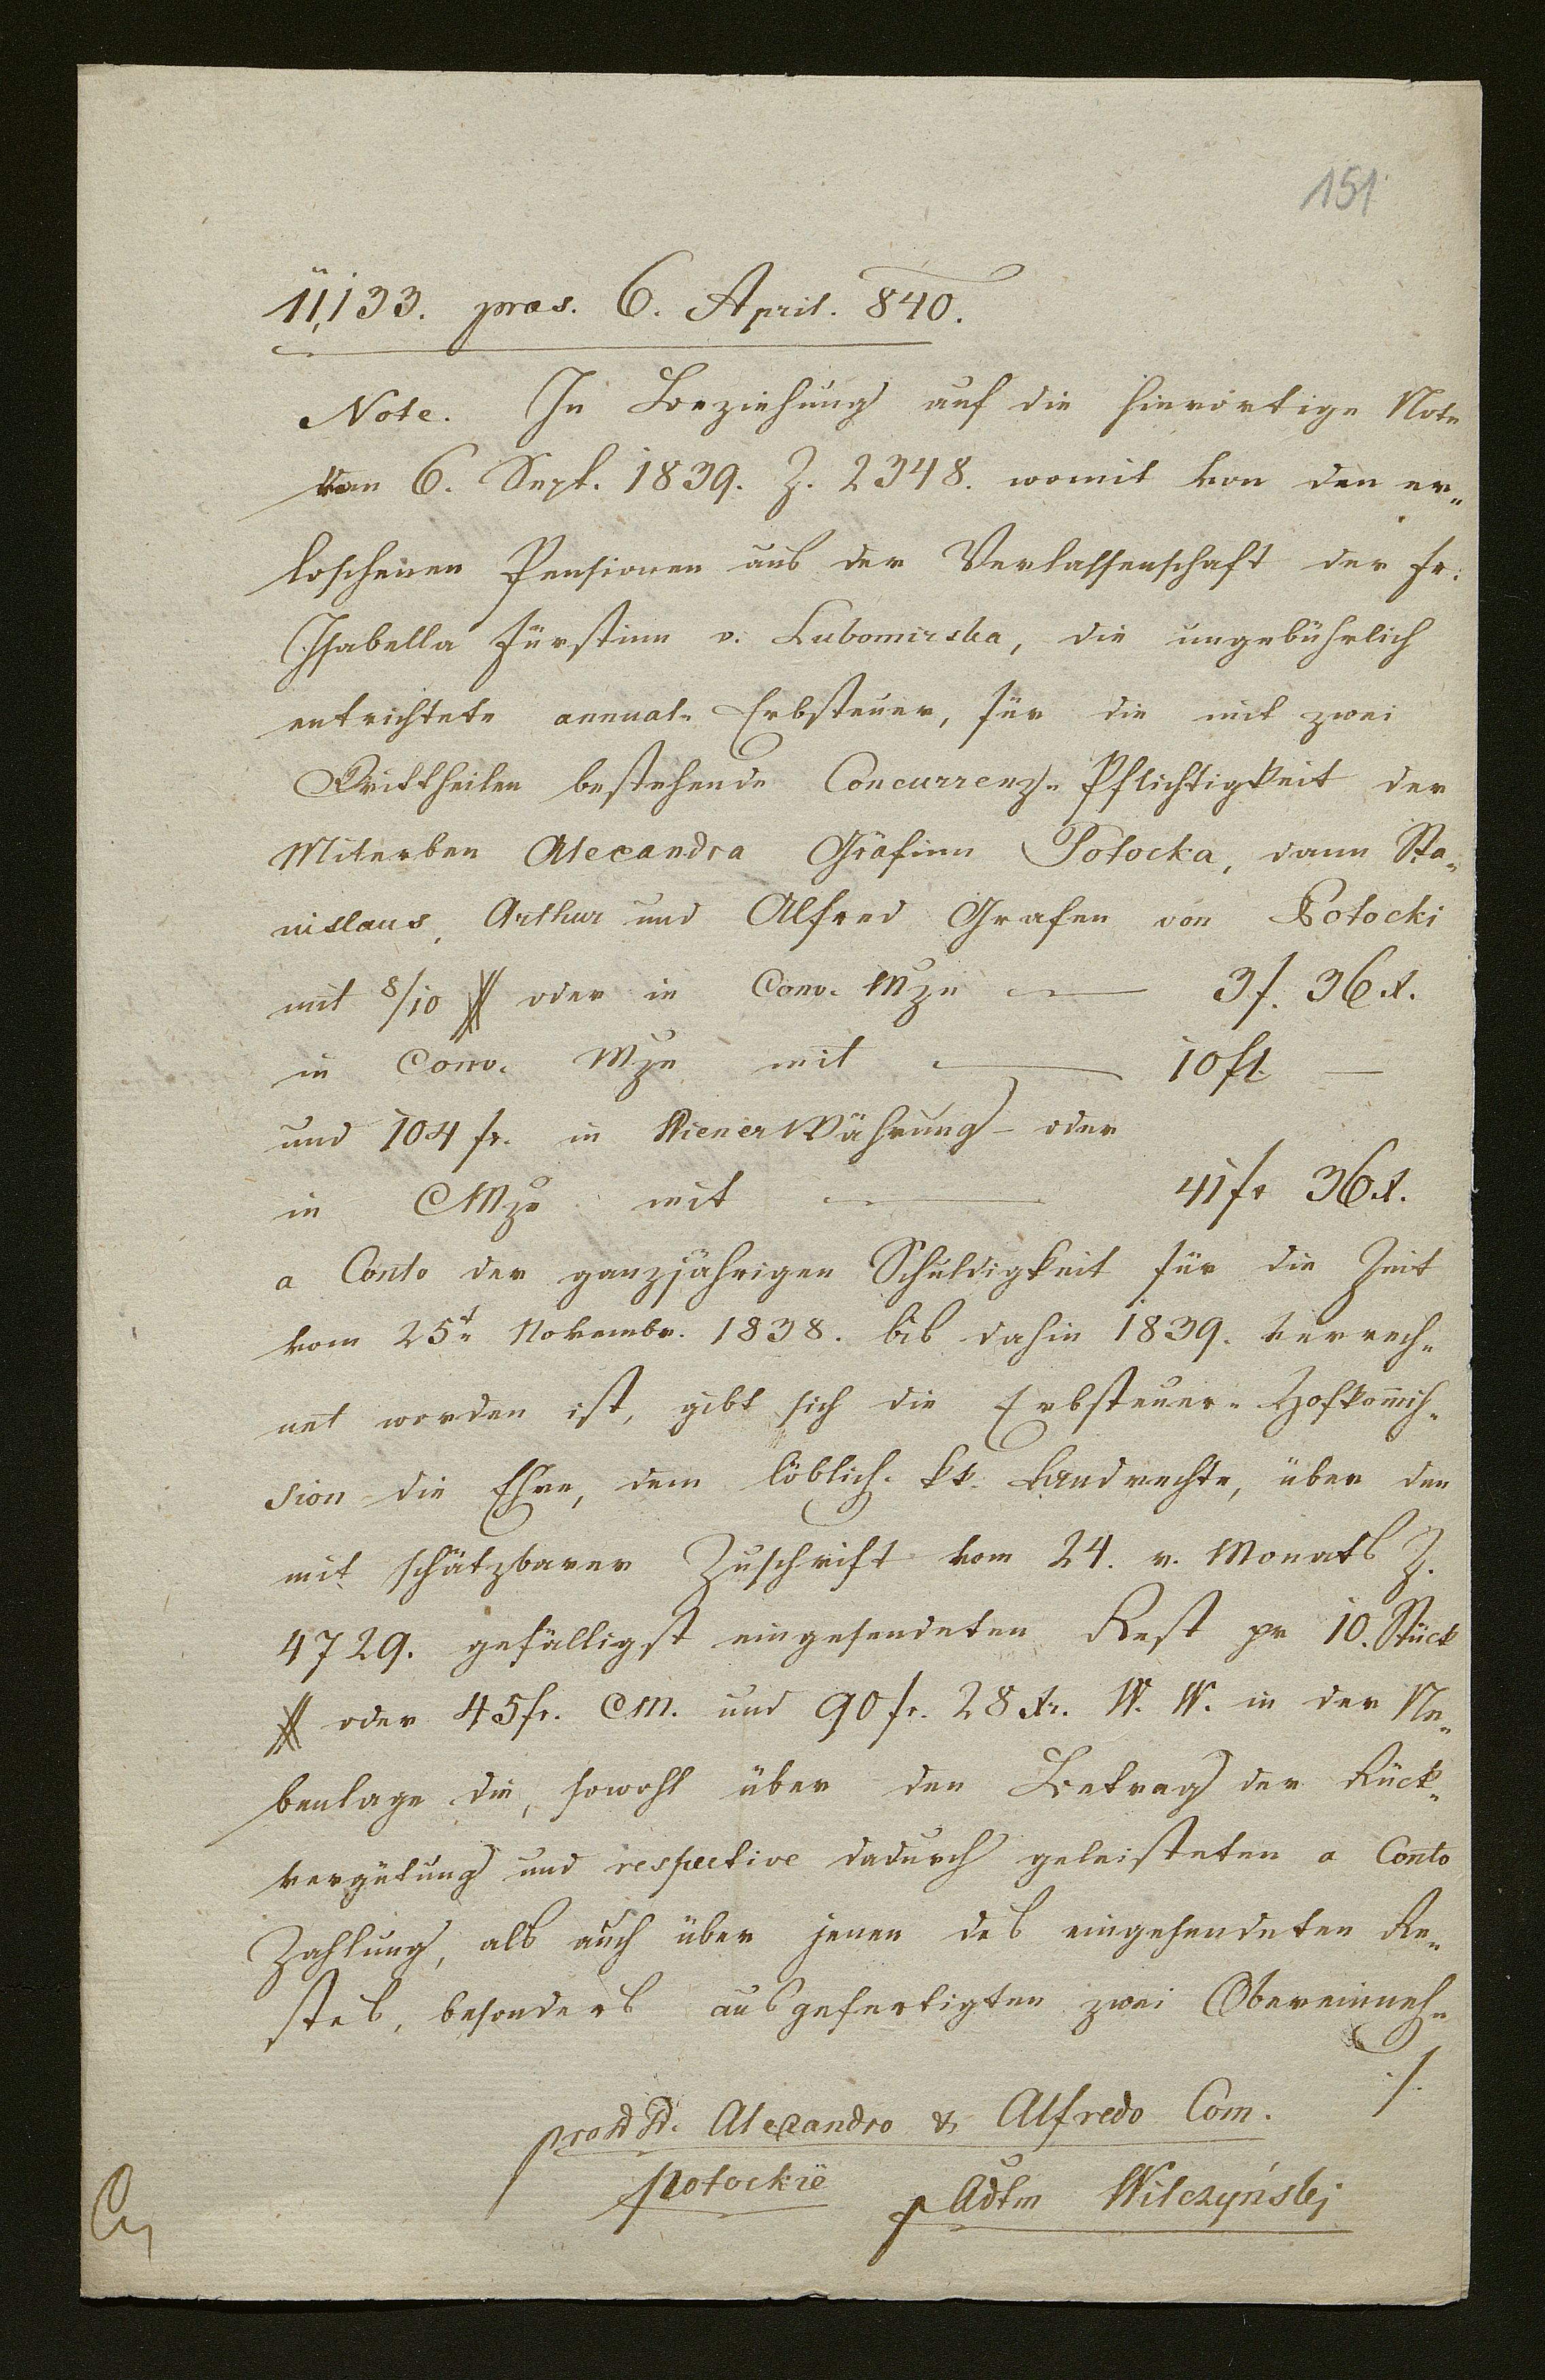 151
11,133. praes. 6. April. 840.
Note. In Beziehung auf die hierortige Note
vom 6. Sept. 1839. Z. 2348. womit von den er„
loschenen Pensionen aus der Verlassenschaft der Fr:
Isabella Fürstinn v. Lubomirska, die ungebührlich
entrichtete annual- Erbsteuer, für die mit zwei
Drittheilen bestehende Concurrenz- Pflichtigkeit der
Miterben Alexandra Gräfinn Potocka, dann Sta„
nislaus, Arthur und Alfred Grafen von Potocki
mit 8/10 # oder in Conv. Mze 3 f. 36 x.
in Conv. Mze mit 10 fl —
und 104 fr. in Wiener Währung oder
in CMze mit 41 fr 36 x.
a Conto der ganzjährigen Schuldigkeit für die Zeit
vom 25t. Novembr. 1838. bis dahin 1839. verrech„
net worden ist, gibt sich die Erbsteuer- Hofkom̄is„
sion die Ehre, dem löblich. kk. Landrechte, über den
mit schätzbarer Zuschrift vom 24. v. Monats Z.
4729. gefälligst eingesendeten Rest pr 10. Stück
# oder 45 fr. CM. und 90 fr. 28 xr. W. W. in der Ne„
benlage die, sowohl über den Betrag der Rück„
vergütung und respective dadurch geleisteten a Conto
Zahlung, als auch über jenen des eingesendeten Re„
stes, besonders ausgefertigten zwei Obereinneh„
./.
pro DD. Alexandro & Alfredo Com.
Potockie
Wilczyński